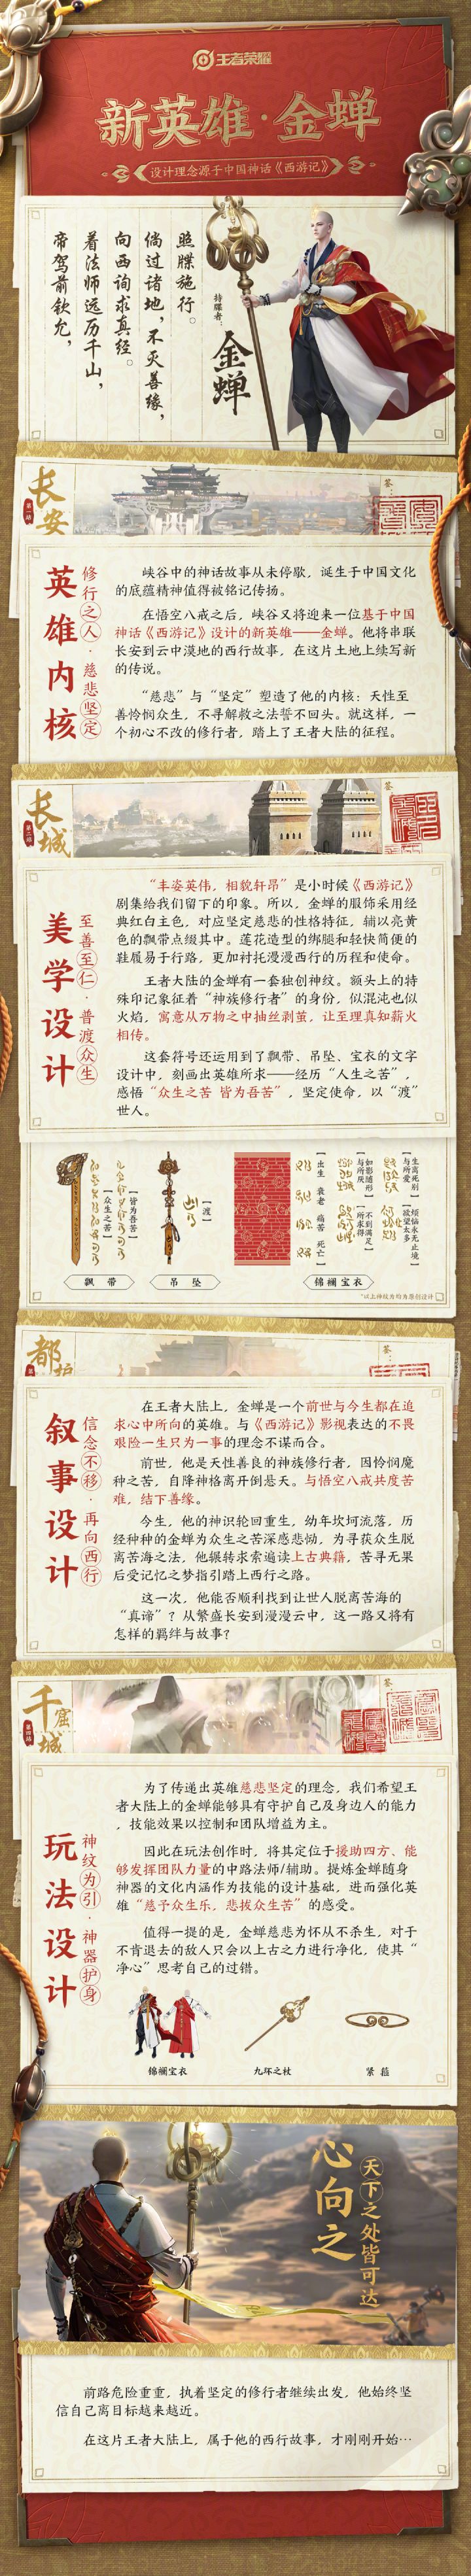 王者荣耀
新英雄·金蝉
设计理念源于中国神话《西游记》
帝驾前钦允，
着法师远历千山，
向西询求真经。
倘过诸地，不灭善缘，
照牒施行。
持牒者：
金蝉
长安
第一站
签：
英雄内核
修行之人·慈悲坚定
峡谷中的神话故事从未停歇，诞生于中国文化
的底蕴精神值得被铭记传扬。
在悟空八戒之后，峡谷又将迎来一位基于中国
神话《西游记》设计的新英雄——金蝉。他将串联
长安到云中漠地的西行故事，在这片土地上续写新
的传说。
“慈悲”与“坚定”塑造了他的内核：天性至
善怜悯众生，不寻解救之法誓不回头。就这样，一
个初心不改的修行者，踏上了王者大陆的征程。
长城
第二站
签：
美学设计
至善至仁·普渡众生
“丰姿英伟，相貌轩昂”是小时候《西游记》
剧集给我们留下的印象。所以，金蝉的服饰采用经
典红白主色，对应坚定慈悲的性格特征，辅以亮黄
色的飘带点缀其中。莲花造型的绑腿和轻快简便的
鞋履易于行路，更加衬托漫漫西行的历程和使命。
王者大陆的金蝉有一套独创神纹。额头上的特
殊印记象征着“神族修行者”的身份，似混沌也似
火焰，寓意从万物之中抽丝剥茧，让至理真知薪火
相传。
这套符号还运用到了飘带、吊坠、宝衣的文字
设计中，刻画出英雄所求——经历“人生之苦”，
感悟“众生之苦 皆为吾苦”，坚定使命，以“渡”
世人。
【众生之苦】
【皆为吾苦】
【渡】
【出生 衰老 痛苦 死亡】
【如影随形 不到满足】
【与所厌 所求得】
【生离死别 烦恼永无止境】
【与所爱 欲望太多】
飘带
吊坠
锦襕宝衣
*以上神纹为均为原创设计
都护
签：
叙事设计
信念不移·再向西行
在王者大陆上，金蝉是一个前世与今生都在追
求心中所向的英雄。与《西游记》影视表达的不畏
艰险一生只为一事的理念不谋而合。
前世，他是天性善良的神族修行者，因怜悯魔
种之苦，自降神格离开倒悬天。与悟空八戒共度苦
难，结下善缘。
今生，他的神识轮回重生，幼年坎坷流落，历
经种种的金蝉为众生之苦深感悲恸，为寻获众生脱
离苦海之法，他辗转求索遍读上古典籍，苦寻无果
后受记忆之梦指引踏上西行之路。
这一次，他能否顺利找到让世人脱离苦海的
“真谛”？从繁盛长安到漫漫云中，这一路又将有
怎样的羁绊与故事？
千窟城
第四站
签：
玩法设计
神纹为引·神器护身
为了传递出英雄慈悲坚定的理念，我们希望王
者大陆上的金蝉能够具有守护自己及身边人的能力
，技能效果以控制和团队增益为主。
因此在玩法创作时，将其定位于援助四方、能
够发挥团队力量的中路法师/辅助。提炼金蝉随身
神器的文化内涵作为技能的设计基础，进而强化英
雄“慈予众生乐，悲拔众生苦”的感受。
值得一提的是，金蝉慈悲为怀从不杀生，对于
不肯退去的敌人只会以上古之力进行净化，使其“
净心”思考自己的过错。
锦襕宝衣
九环之杖
紧箍
心向之
天下之处皆可达
前路危险重重，执着坚定的修行者继续出发，他始终坚
信自己离目标越来越近。
在这片王者大陆上，属于他的西行故事，才刚刚开始…